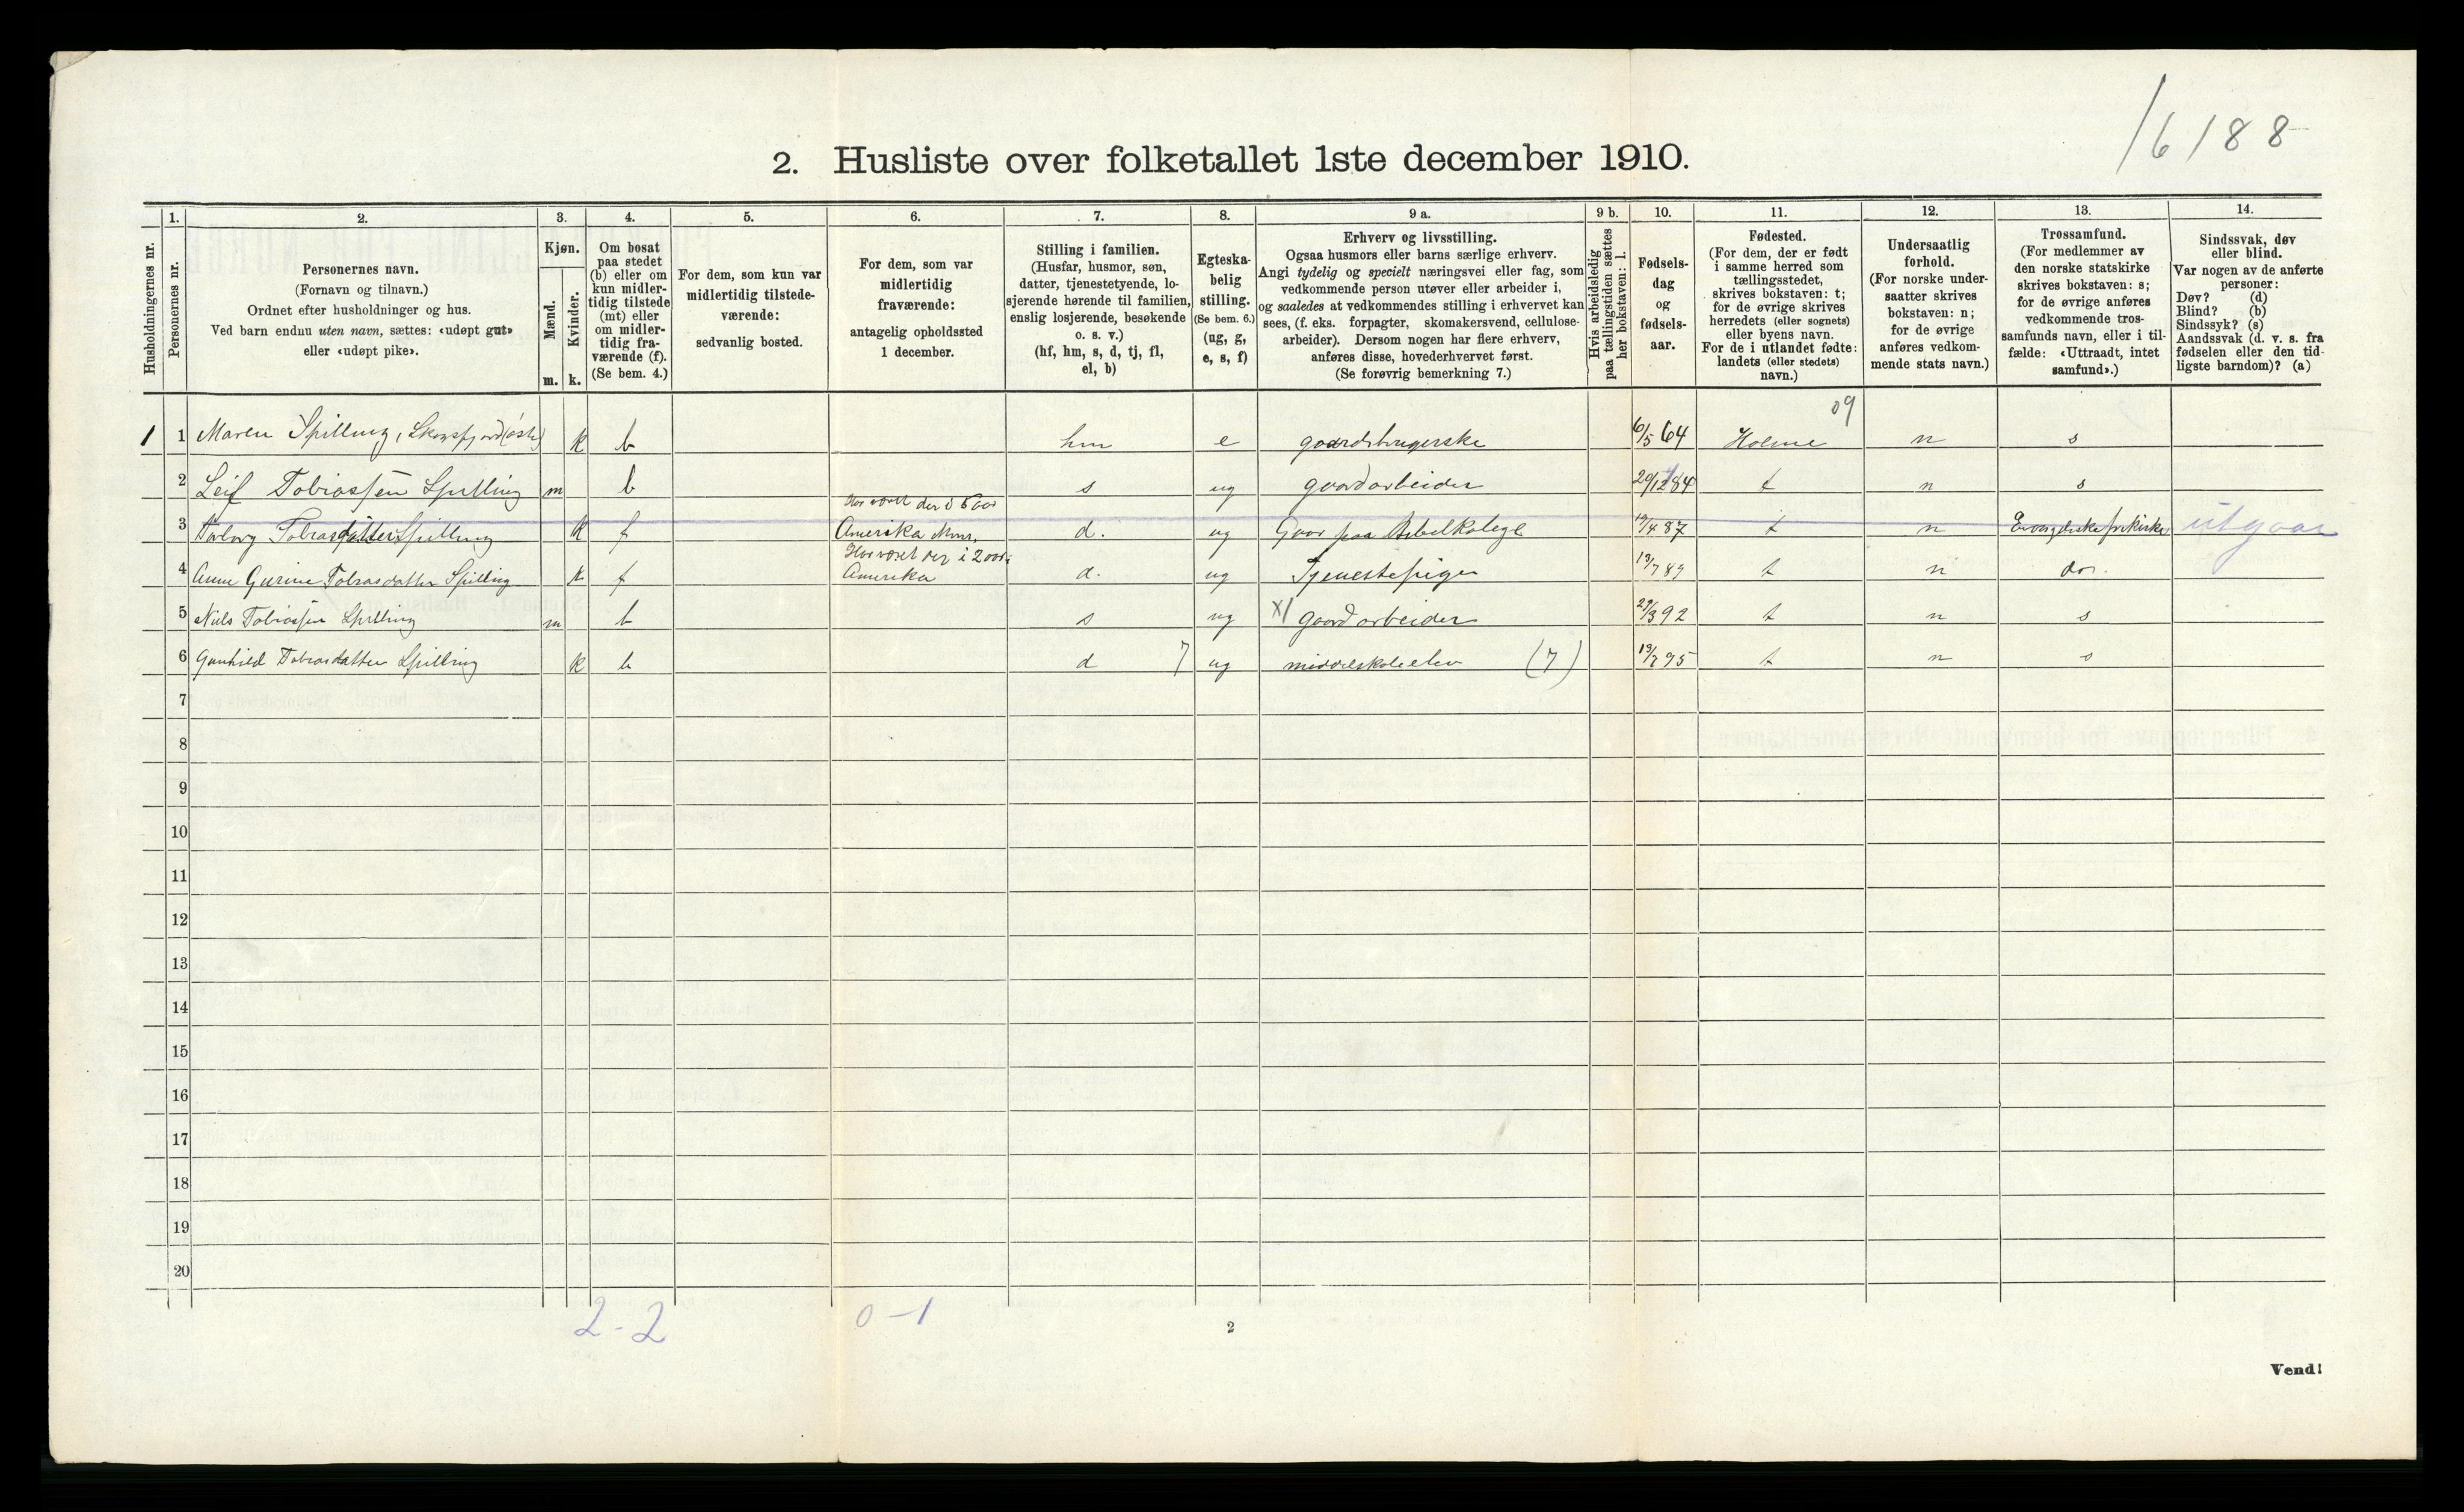 16188
2. Husliste over folketallet 1ste december 1910.
Husholdningernes nr.
1.
Personernes nr.
2.
Personernes navn.
(Fornavn og tilnavn.)
Ordnet efter husholdninger og hus.
Ved barn endnu uten navn, sættes: «udøpt gut»
eller «udøpt pike».
3.
Kjøn.
Mænd.
Kvinder.
m.
k.
4.
Om bosat
paa stedet
(b) eller om
kun midler-
tidig tilstede
(mt) eller
om midler-
tidig fra-
værende (f).
(Se bem. 4.)
5.
For dem, som kun var
midlertidig tilstede-
værende:
sedvanlig bosted.
6.
For dem, som var
midlertidig
fraværende:
antagelig opholdssted
1 december.
7.
Stilling i familien.
(Husfar, husmor, søn,
datter, tjenestetyende, lo-
sjerende hørende til familien,
enslig losjerende, besøkende
o. s. v.)
(hf, hm, s, d, tj, fl,
el, b)
8.
Egteska-
belig
stilling.
(Se bem. 6.)
(ug, g,
e, s, f)
9 a.
Erhverv og livsstilling.
Ogsaa husmors eller barns særlige erhverv.
Angi tydelig og specielt næringsvei eller fag, som
vedkommende person utøver eller arbeider i,
og saaledes at vedkommendes stilling i erhvervet kan
sees, (f. eks. forpagter, skomakersvend, cellulose-
arbeider). Dersom nogen har flere erhverv,
anføres disse, hovederhvervet først.
(Se forøvrig bemerkning 7.)
9 b.
Hvis arbeidsledig
paa tællingstiden sættes
her bokstaven: l.
10.
Fødsels-
dag
og
fødsels-
aar.
11.
Fødested.
(For dem, der er født
i samme herred som
tællingsstedet,
skrives bokstaven: t;
for de øvrige skrives
herredets (eller sognets)
eller byens navn.
For de i utlandet fødte:
landets (eller stedets)
navn.)
12.
Undersaatlig
forhold.
(For norske under-
saatter skrives
bokstaven: n;
for de øvrige
anføres vedkom-
mende stats navn.)
13.
Trossamfund.
(For medlemmer av
den norske statskirke
skrives bokstaven: s;
for de øvrige anføres
vedkommende tros-
samfunds navn, eller i til-
fælde: «Uttraadt, intet
samfund».)
14.
Sindssvak, døv
eller blind.
Var nogen av de anførte
personer:
Døv? (d)
Blind? (b)
Sindssyk? (s)
Aandssvak (d. v. s. fra
fødselen eller den tid-
ligste barndom)? (a)
09
1 1 Maren Spilling, k b hm e gaardsbrugerske 6/5 64 Holme n s
2 Leif Tobiassen Spilling m b s ug gaardarbeider 29/12 84 t n s
Har været der i 5 aar
3 Tobiasdatter Spilling k f Amerika Minn. d. ug Gaar paa Bibelkolege 19/4 87 t n frikirke utgaar
Har været der i 2 aar
4 Anne Gurine Tobiasdatter Spilling k f Amerika d. ug Tjenestepige 13/7 89 t n do.
5 Niels Tobiassen Spilling m b s ug x/ gaardarbeider 29/3 92 t n s
6 Gunhild Tobiasdatter Spilling k b d 7 ug middelskoleelev (7) 19/7 95 t n s
7
8
9
10
11
12
13
14
15
16
17
18
19
20
2-2
0-1
2
Vend!